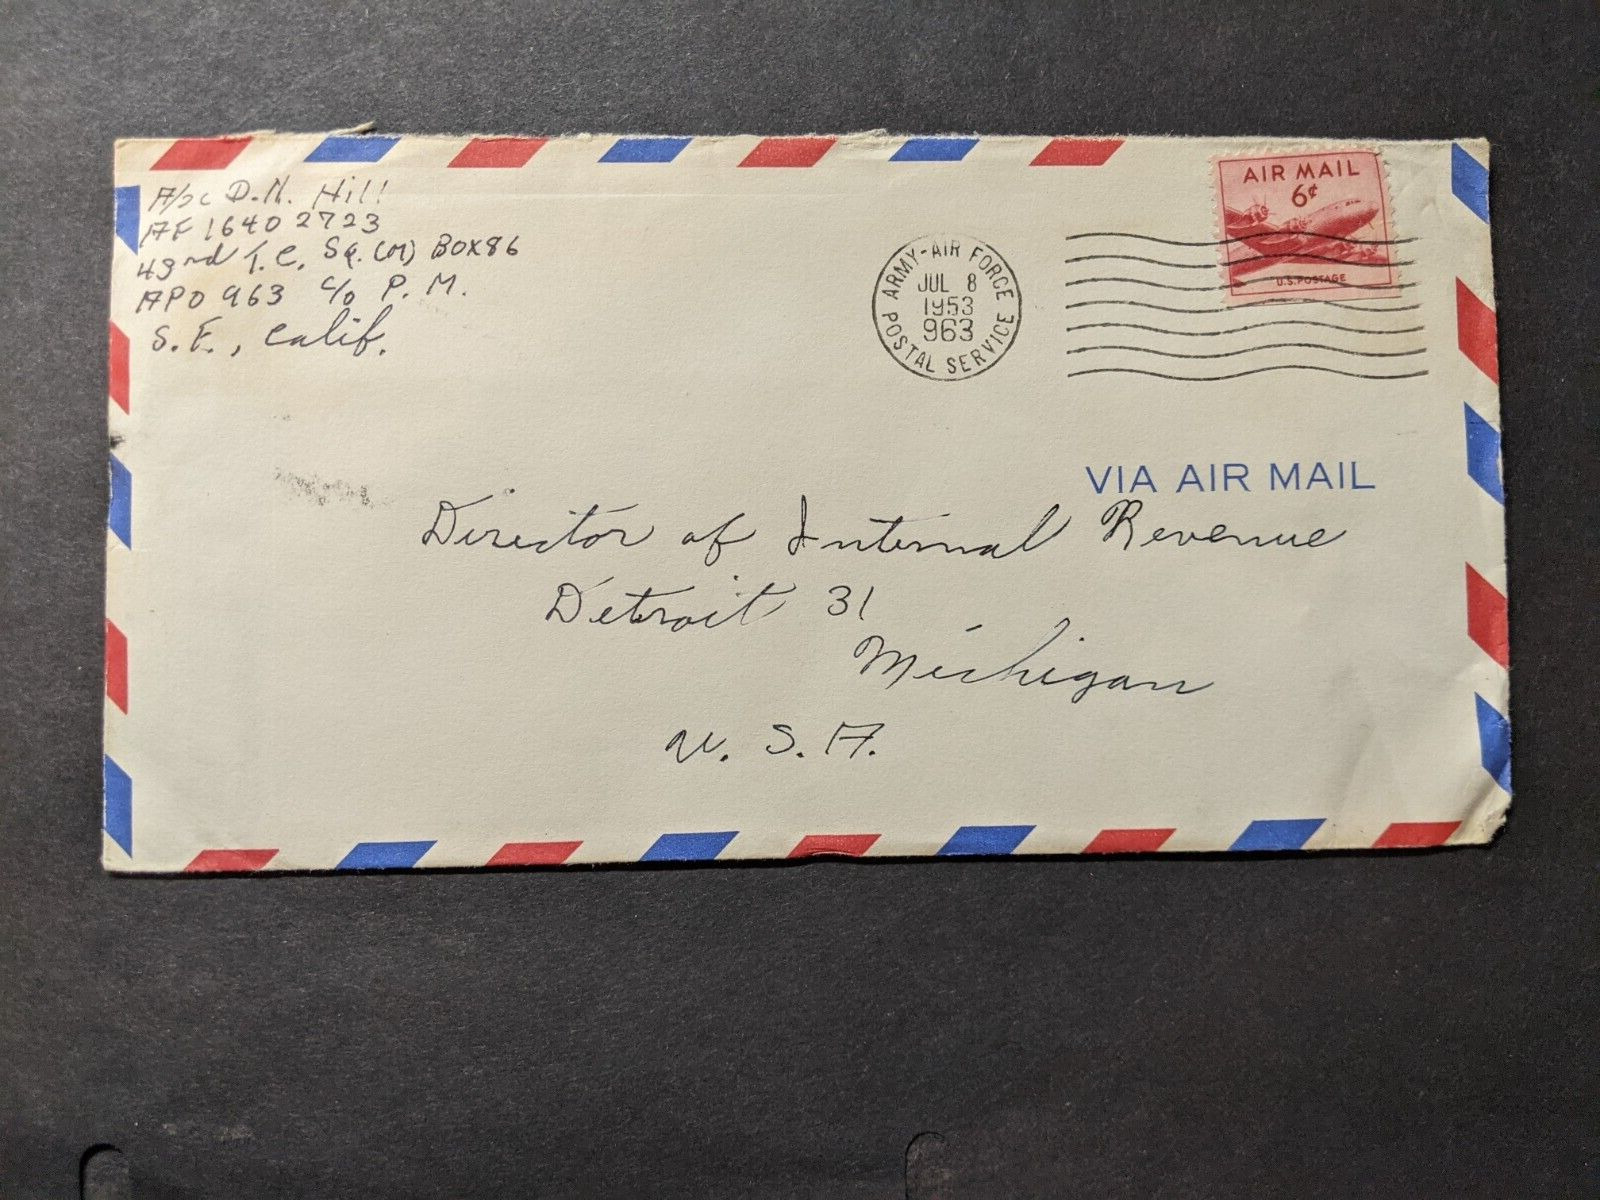 A/2C D.N. Hill
AF 16402723
43rd T.C. Sq. (M) BOX 86
APO 963 c/o P.M.
S.F., Calif.
AIR MAIL
6¢
U.S. POSTAGE
ARMY-AIR FORCE
JUL 8
1953
963
POSTAL SERVICE
VIA AIR MAIL
Director of Internal Revenue
Detroit 31
Michigan
U. S. A.